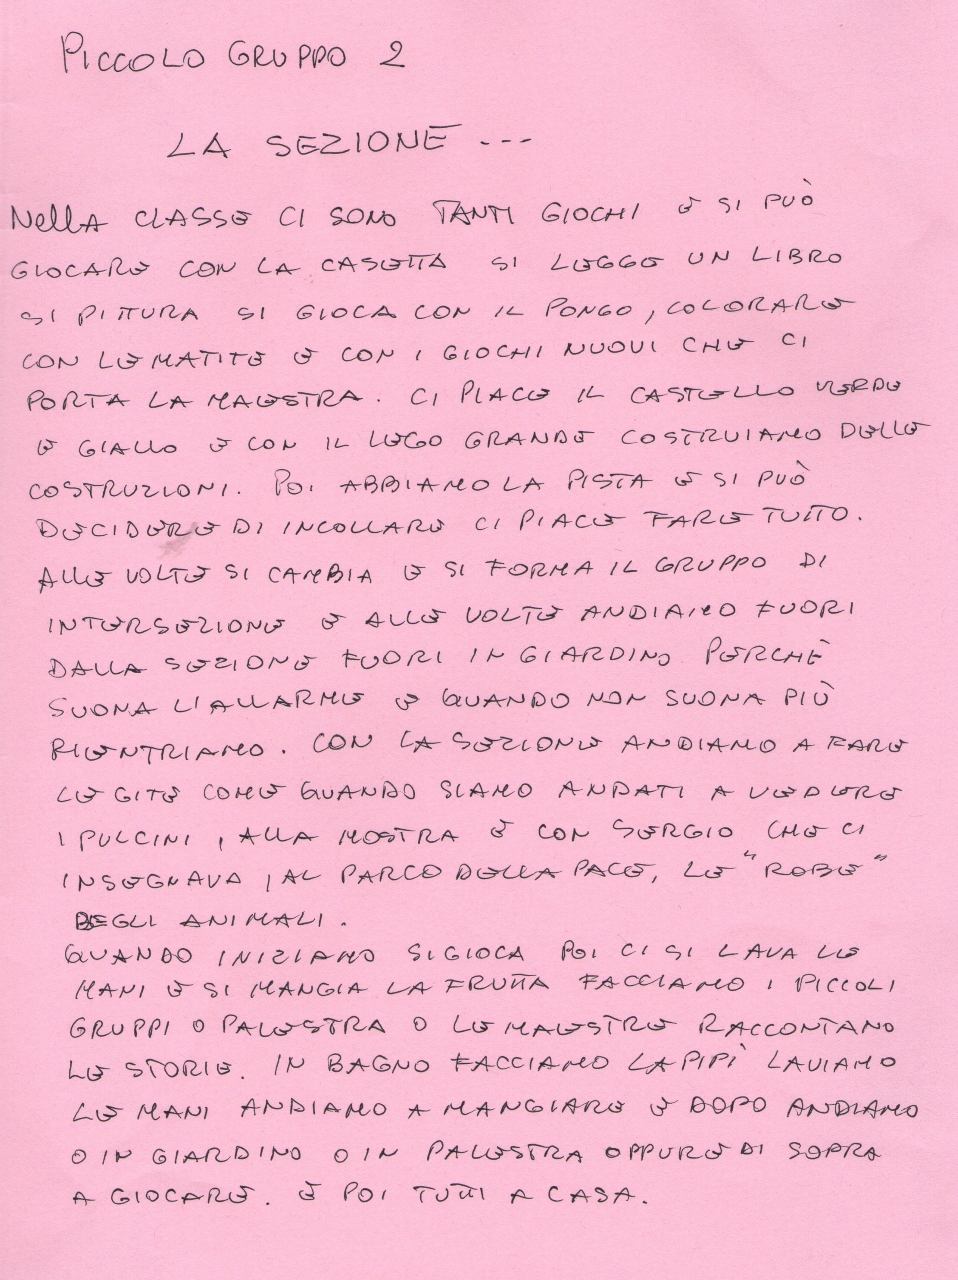 PICCOLO GRUPPO 2
LA SEZIONE ---
NELLA CLASSE CI SONO TANTI GIOCHI E SI PUÒ
GIOCARE CON LA CASETTA SI LEGGE UN LIBRO
SI PITTURA SI GIOCA CON IL PONGO, COLORARE
CON LE MATITE E CON I GIOCHI NUOVI CHE CI
PORTA LA MAESTRA. CI PIACE IL CASTELLO VERDE
E GIALLO E CON IL LEGO GRANDE COSTRUIAMO DELLE
COSTRUZIONI. POI ABBIAMO LA PISTA E SI PUÒ
DECIDERE DI INCOLLARE CI PIACE FARE TUTTO.
ALLE VOLTE SI CAMBIA E SI FORMA IL GRUPPO DI
INTERSEZIONE E ALLE VOLTE ANDIAMO FUORI
DALLA SEZIONE FUORI IN GIARDINO PERCHÈ
SUONA L'ALLARME E QUANDO NON SUONA PIÙ
RIENTRIAMO. CON LA SEZIONE ANDIAMO A FARE
LE GITE COME QUANDO SIAMO ANDATI A VEDERE
I PULCINI, ALLA MOSTRA E CON SERGIO CHE CI
INSEGNAVA, AL PARCO DELLA PACE, LE "ROBE"
DEGLI ANIMALI.
QUANDO INIZIAMO SI GIOCA POI CI SI LAVA LE
MANI E SI MANGIA LA FRUTTA FACCIAMO I PICCOLI
GRUPPI O PALESTRA O LE MAESTRE RACCONTANO
LE STORIE. IN BAGNO FACCIAMO LA PIPÌ LAVIAMO
LE MANI ANDIAMO A MANGIARE E DOPO ANDIAMO
O IN GIARDINO O IN PALESTRA OPPURE DI SOPRA
A GIOCARE. E POI TUTTI A CASA.